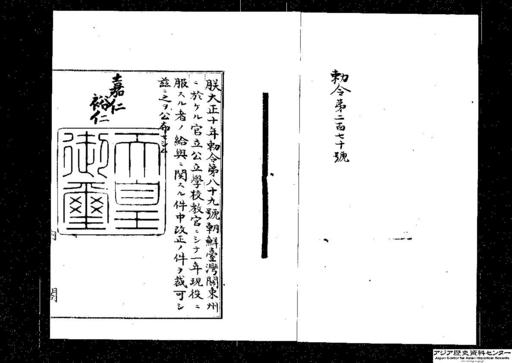 勅令第二百七十號
朕大正十年勅令第八十九號朝鮮臺灣關東州
ニ於ケル官立公立學校教官ニシテ一年現役ニ
服スル者ノ給與ニ関スル件中改正ノ件ヲ裁可シ
茲ニ之ヲ公布セシム
嘉仁
裕仁
天皇
御璽
内
閣
アジア歴史資料センター
Japan Center for Asian Historical Records